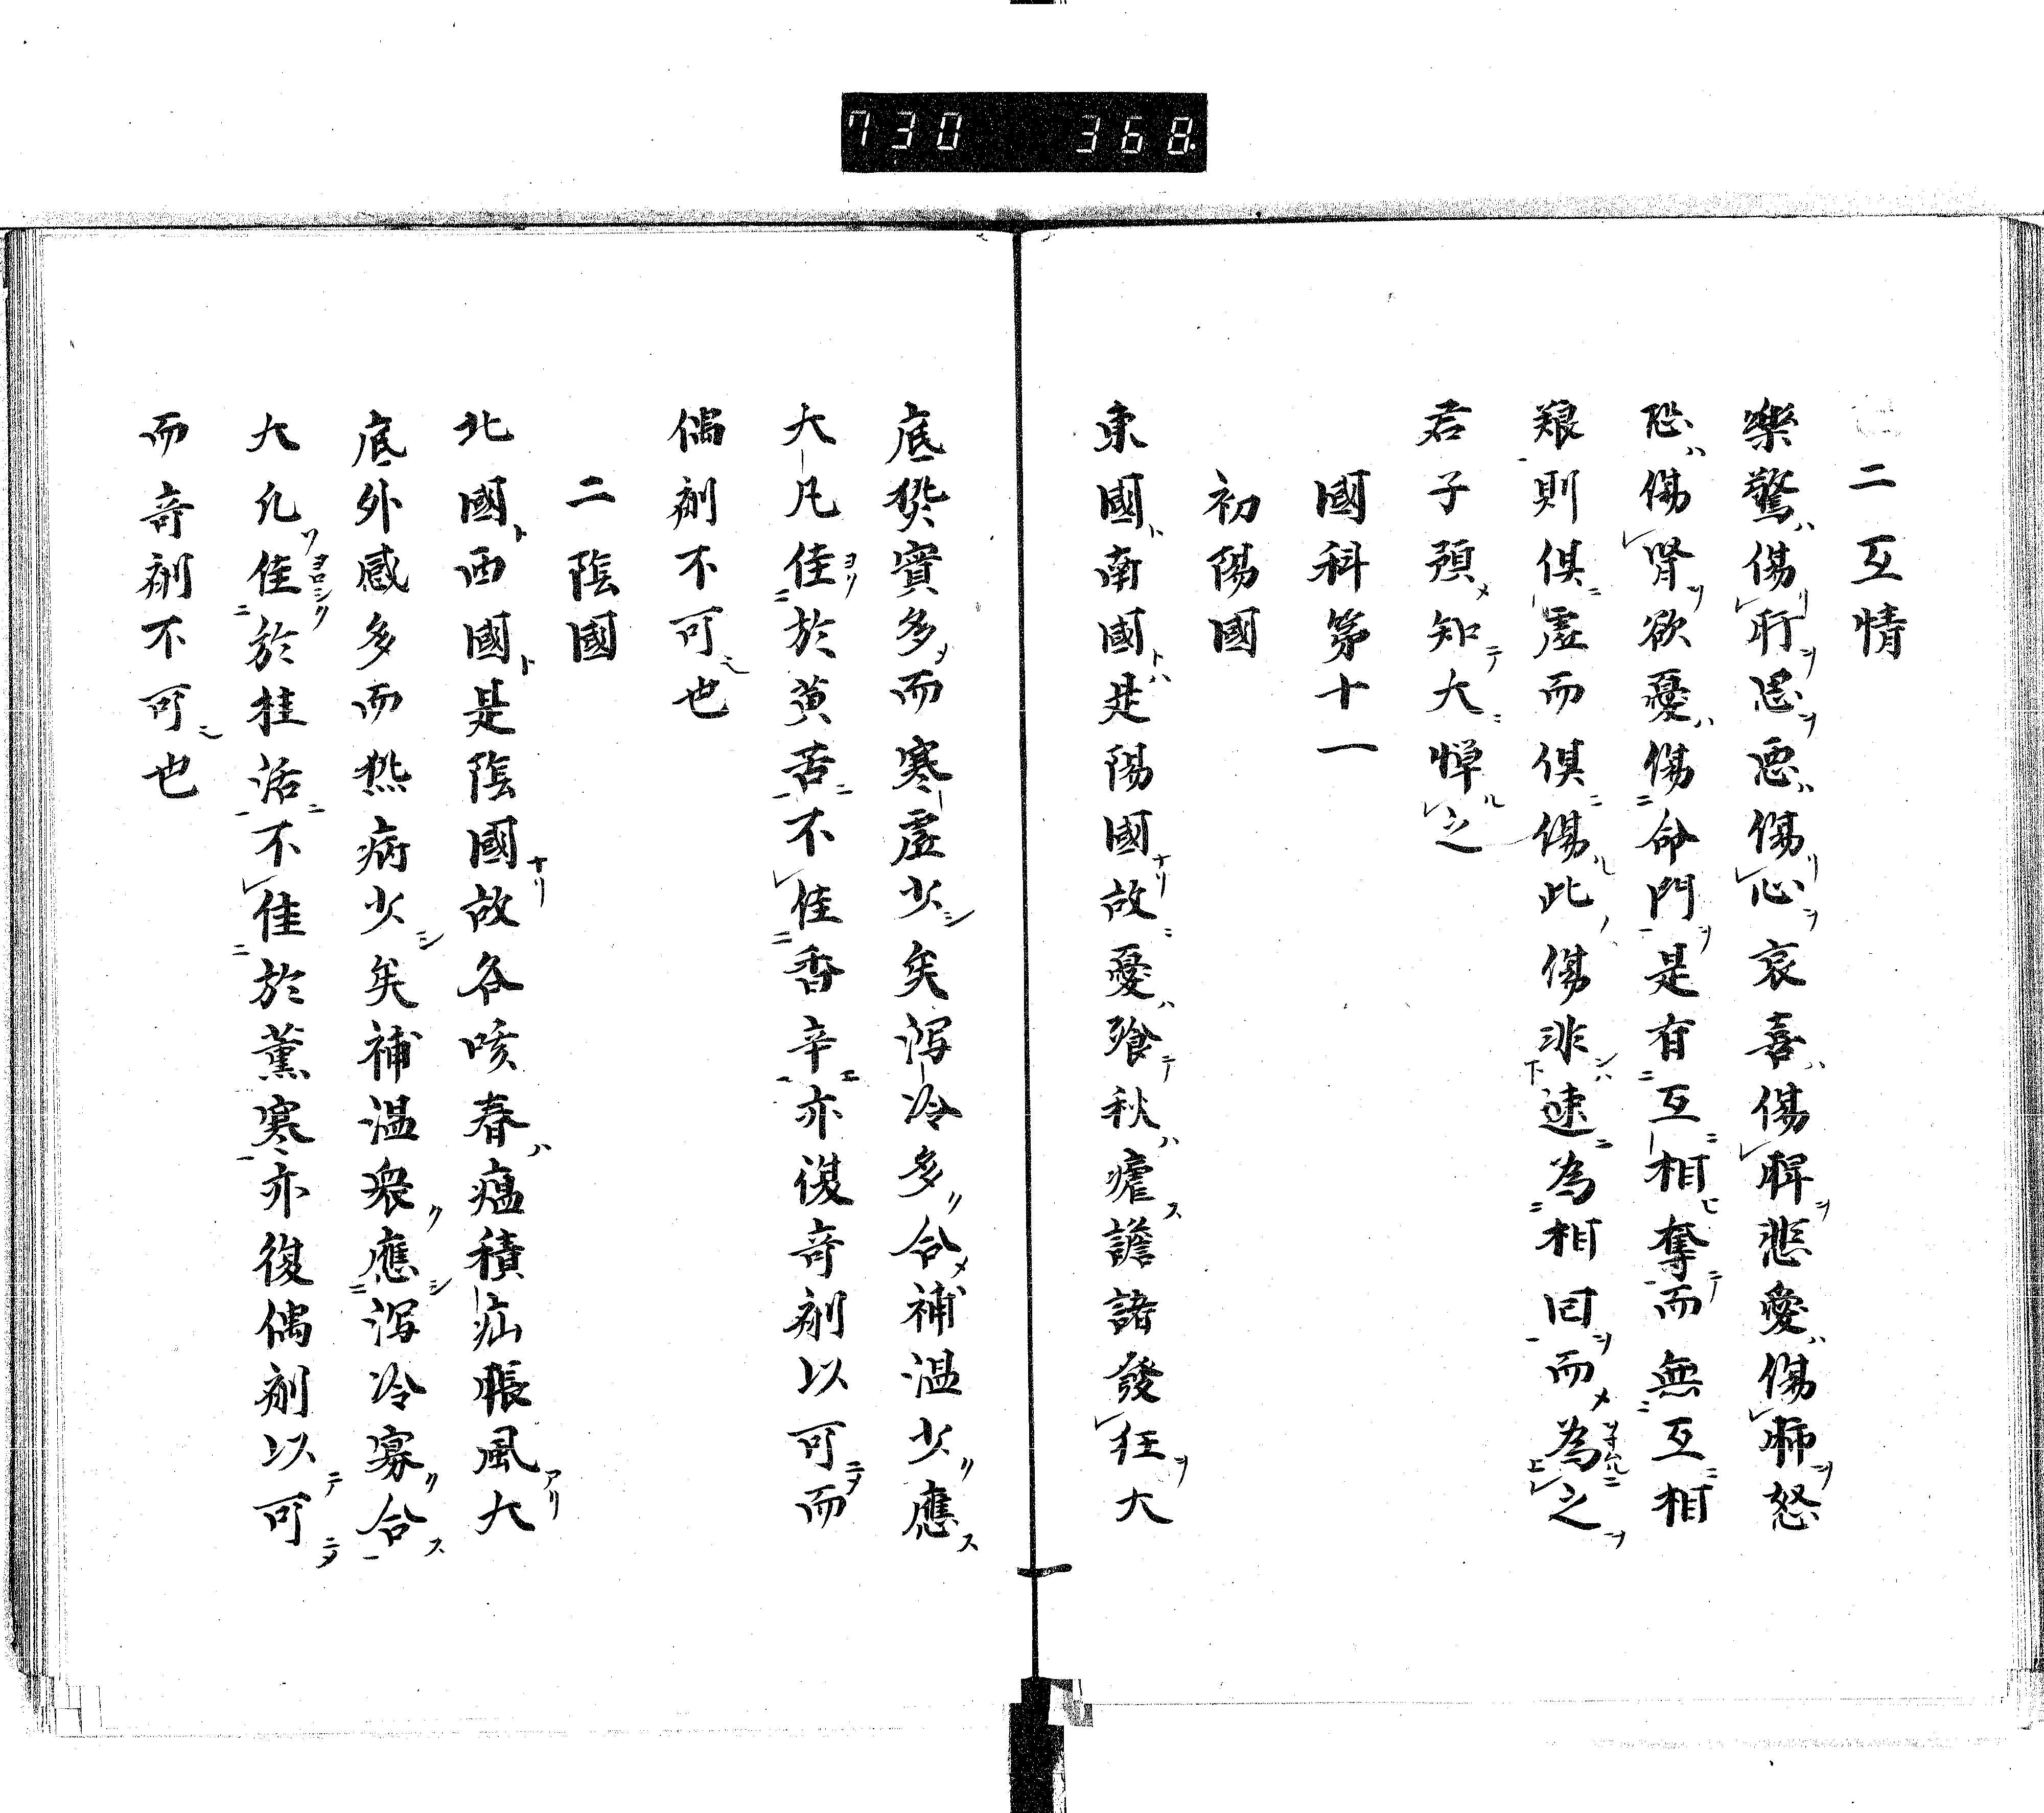 730 368
二互情
樂驚傷肝思悪傷心哀喜傷脾悲愛傷肺怒
恐傷腎欲憂傷命門是有互相奪而無互相
艱則俱虛而俱傷此傷非速為相因而為之
君子預知大憚之
國科第十一
初陽國
東國南國是陽國故憂飱秋瘧譫諸發狂大
底熱實多而寒虛少矣瀉冷多合補温少應
大凡佳於黄苦不佳香辛亦復奇劑以可而
偶劑不可也
二陰國
北國西國是陰國故各咳春瘟積疝脹風大
底外感多而熱病少矣補温衆應瀉冷寡合
大凡佳於桂活不佳於薫寒亦復偶劑以可
而奇劑不可也